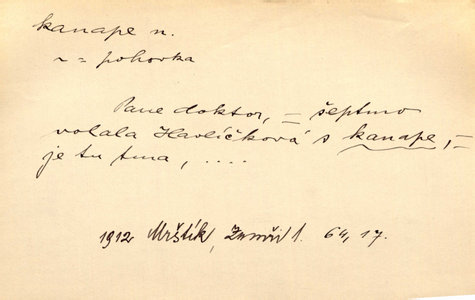 kanape n.
~ = pohovka
Pane doktor, — šeptmo
volala Havlíčková s kanape, —
je tu tma, ....
1912 Mrštík, Zumři 1. 64, 17.